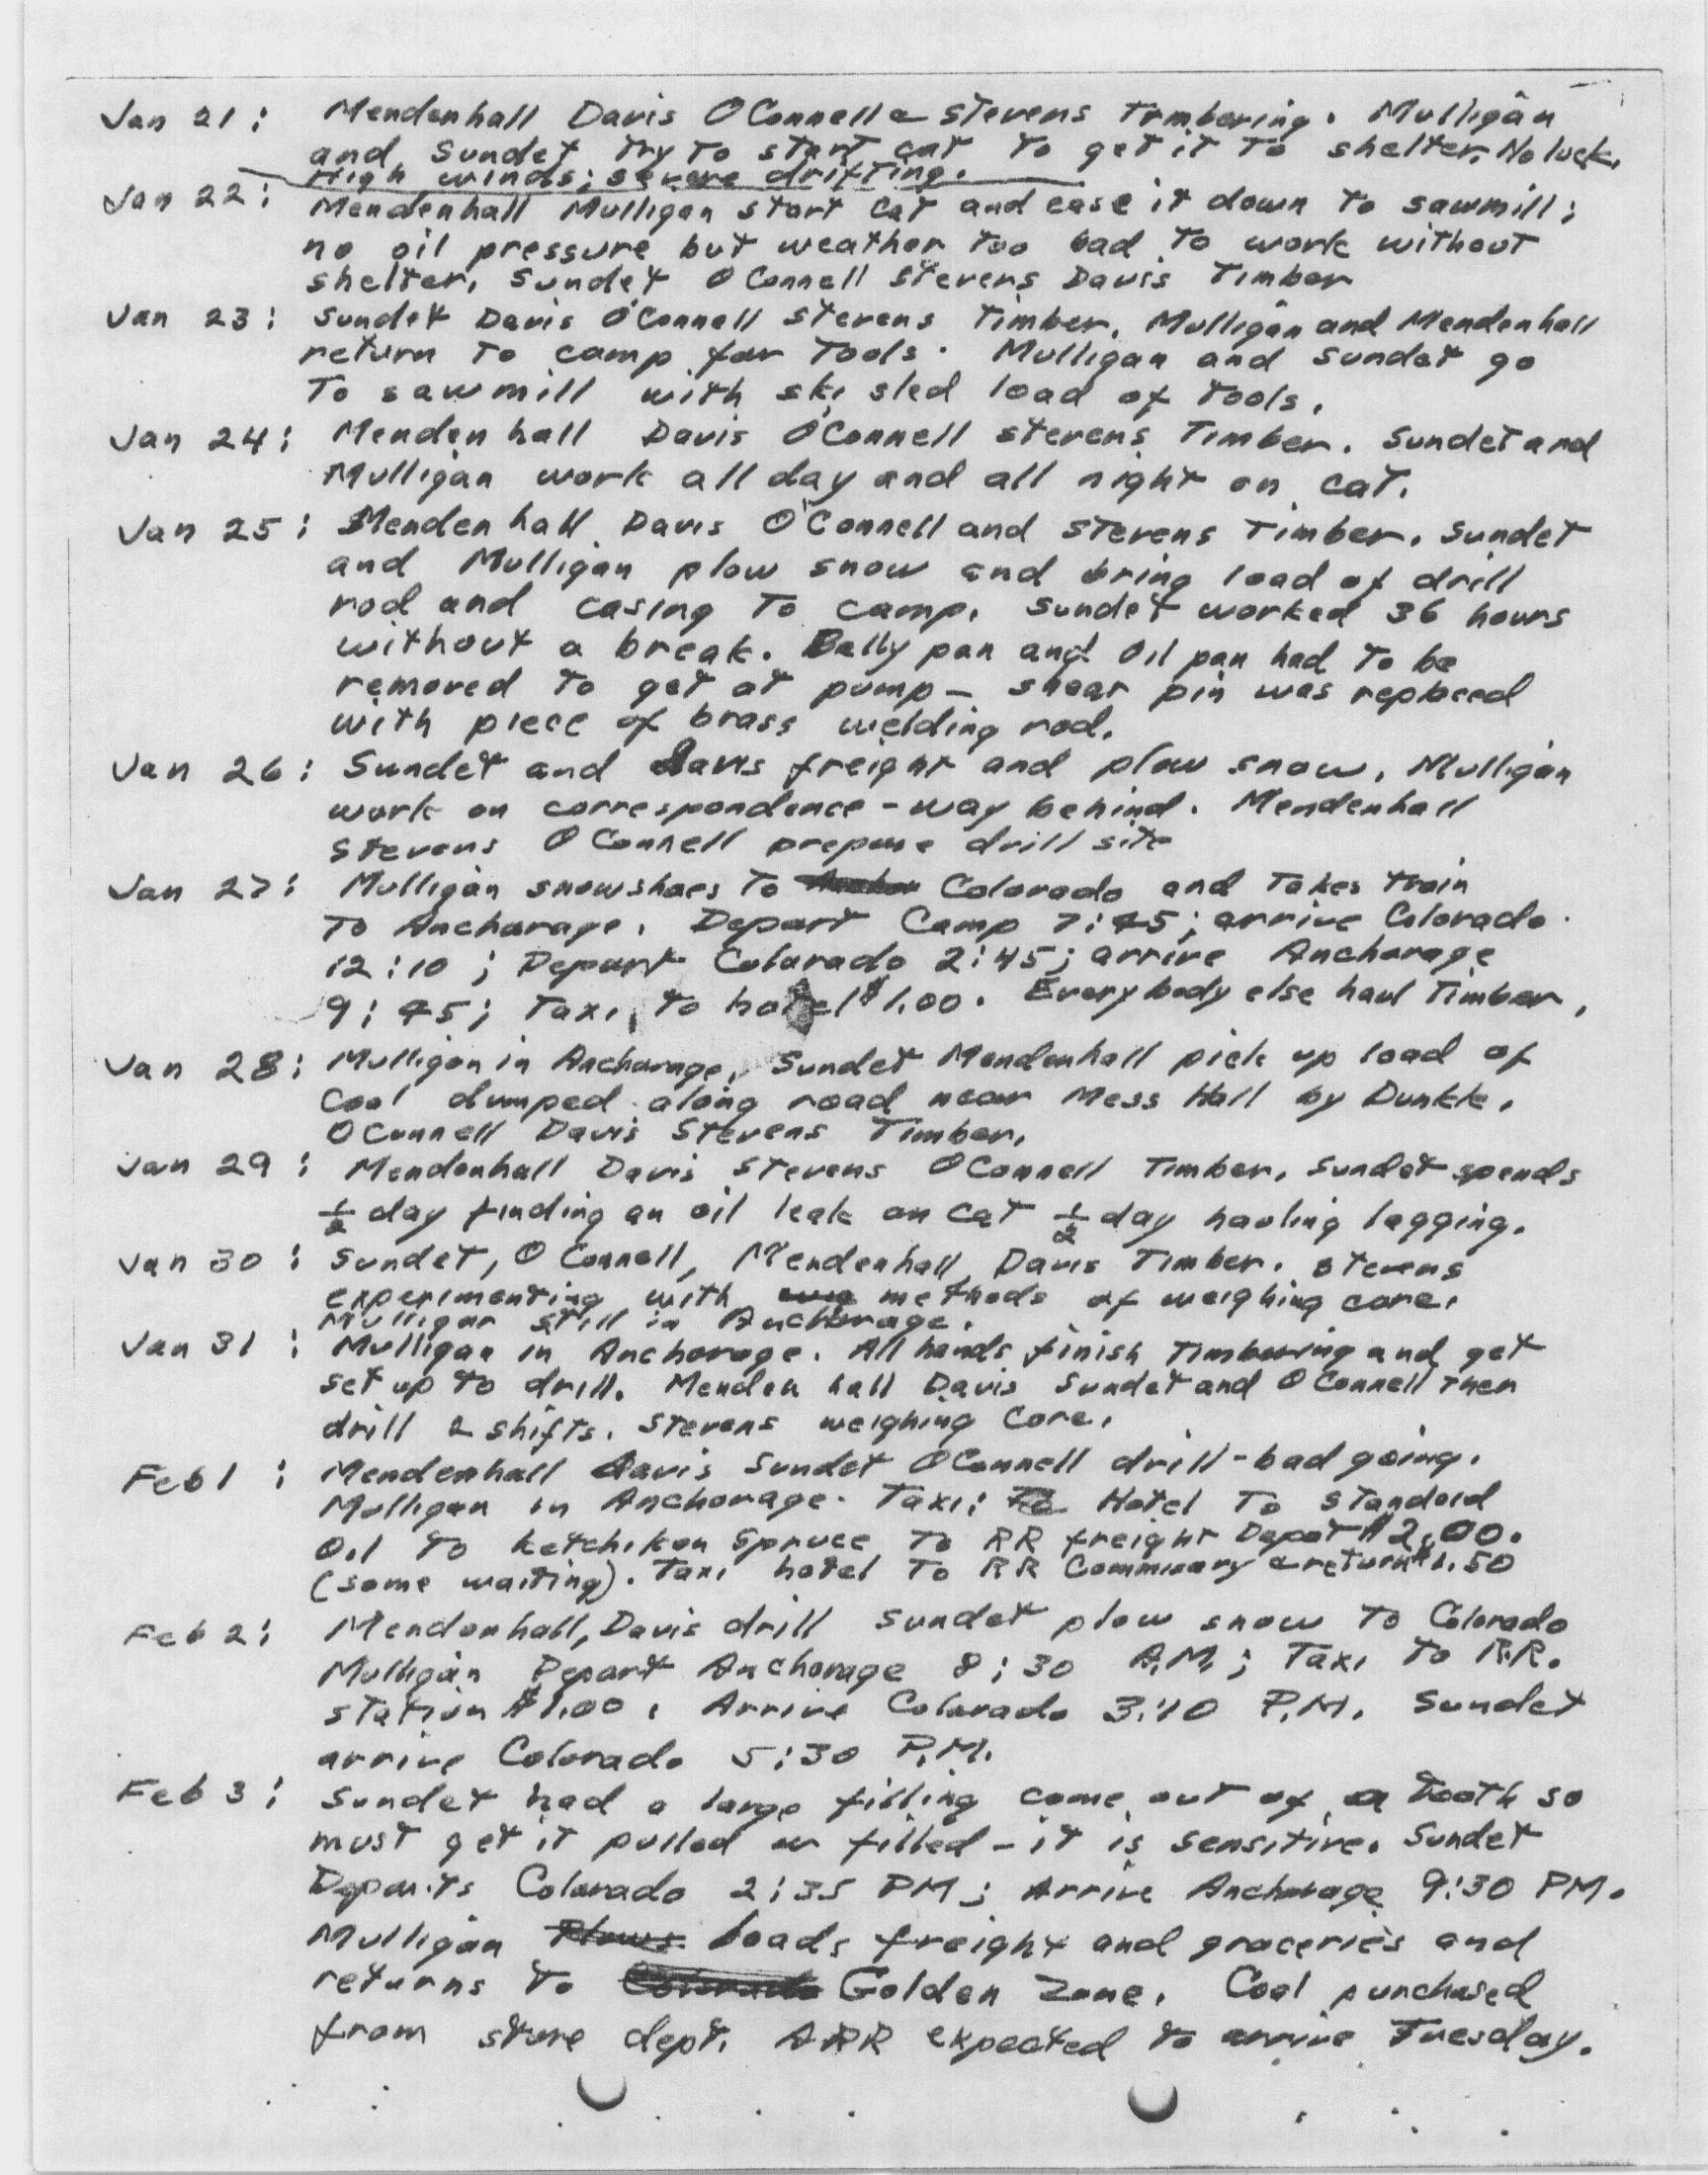 Jan 21: Mendenhall Davis OConnell & Stevens Timbering. Mulligan
and Sundet try to start cat to get it to shelter. No luck.
High winds; severe drifting.
Jan 22: Mendenhall Mulligan start cat and ease it down to sawmill;
no oil pressure but weather too bad to work without
shelter. Sundet O'Connell Stevens Davis Timber
Jan 23: Sundet Davis O'Connell Stevens Timber. Mulligan and Mendenhall
return to camp for tools. Mulligan and Sundet go
to sawmill with ski sled load of tools.
Jan 24: Mendenhall Davis O'Connell Stevens Timber. Sundet and
Mulligan work all day and all night on cat.
Jan 25: Mendenhall Davis O'Connell and Stevens Timber. Sundet
and Mulligan plow snow and bring load of drill
rod and casing to camp. Sundet worked 36 hours
without a break. Belly pan and oil pan had to be
removed to get at pump - shear pin was replaced
with piece of brass welding rod.
Jan 26: Sundet and Davis freight and plow snow. Mulligan
work on correspondence - way behind. Mendenhall
Stevens O Connell prepare drill site
Jan 27: Mulligan snowshoes to Colorado and takes train
to Anchorage. Depart Camp 7:45; arrive Colorado
12:10; Depart Colorado 2:45; arrive Anchorage
9:45; Taxi to hotel $1.00. Everybody else haul Timber.
Jan 28: Mulligan in Anchorage. Sundet Mendenhall pick up load of
coal dumped along road near Mess Hall by Dunkle.
OConnell Davis Stevens Timber.
Jan 29: Mendenhall Davis Stevens OConnell Timber. Sundet spends
1/2 day finding an oil leak on cat 1/2 day hauling lagging.
Jan 30: Sundet, O Connell, Mendenhall, Davis Timber. Stevens
experimenting with methods of weighing core.
Mulligan still in Anchorage.
Jan 31: Mulligan in Anchorage. All hands finish Timbering and get
set up to drill. Mendenhall Davis Sundet and OConnell then
drill 2 shifts. Stevens weighing core.
Feb 1: Mendenhall Davis Sundet OConnell drill - bad going.
Mulligan in Anchorage. Taxi: Hotel to Standard
Oil to Ketchikan Spruce to RR freight Depot $2.00.
(some waiting). Taxi hotel to RR Commisary & return $1.50
Feb 2: Mendenhall, Davis drill Sundet plow snow to Colorado
Mulligan Depart Anchorage 8:30 A.M.; Taxi to R.R.
station $1.00. Arrive Colorado 3:10 P.M. Sundet
arrive Colorado 5:30 P.M.
Feb 3: Sundet had a large filling come out of a tooth so
must get it pulled or filled - it is sensitive. Sundet
Departs Colorado 2:35 PM; Arrive Anchorage 9:30 PM.
Mulligan loads freight and groceries and
returns to Golden Zone. Coal purchased
from store dept. ARR expected to arrive Tuesday.